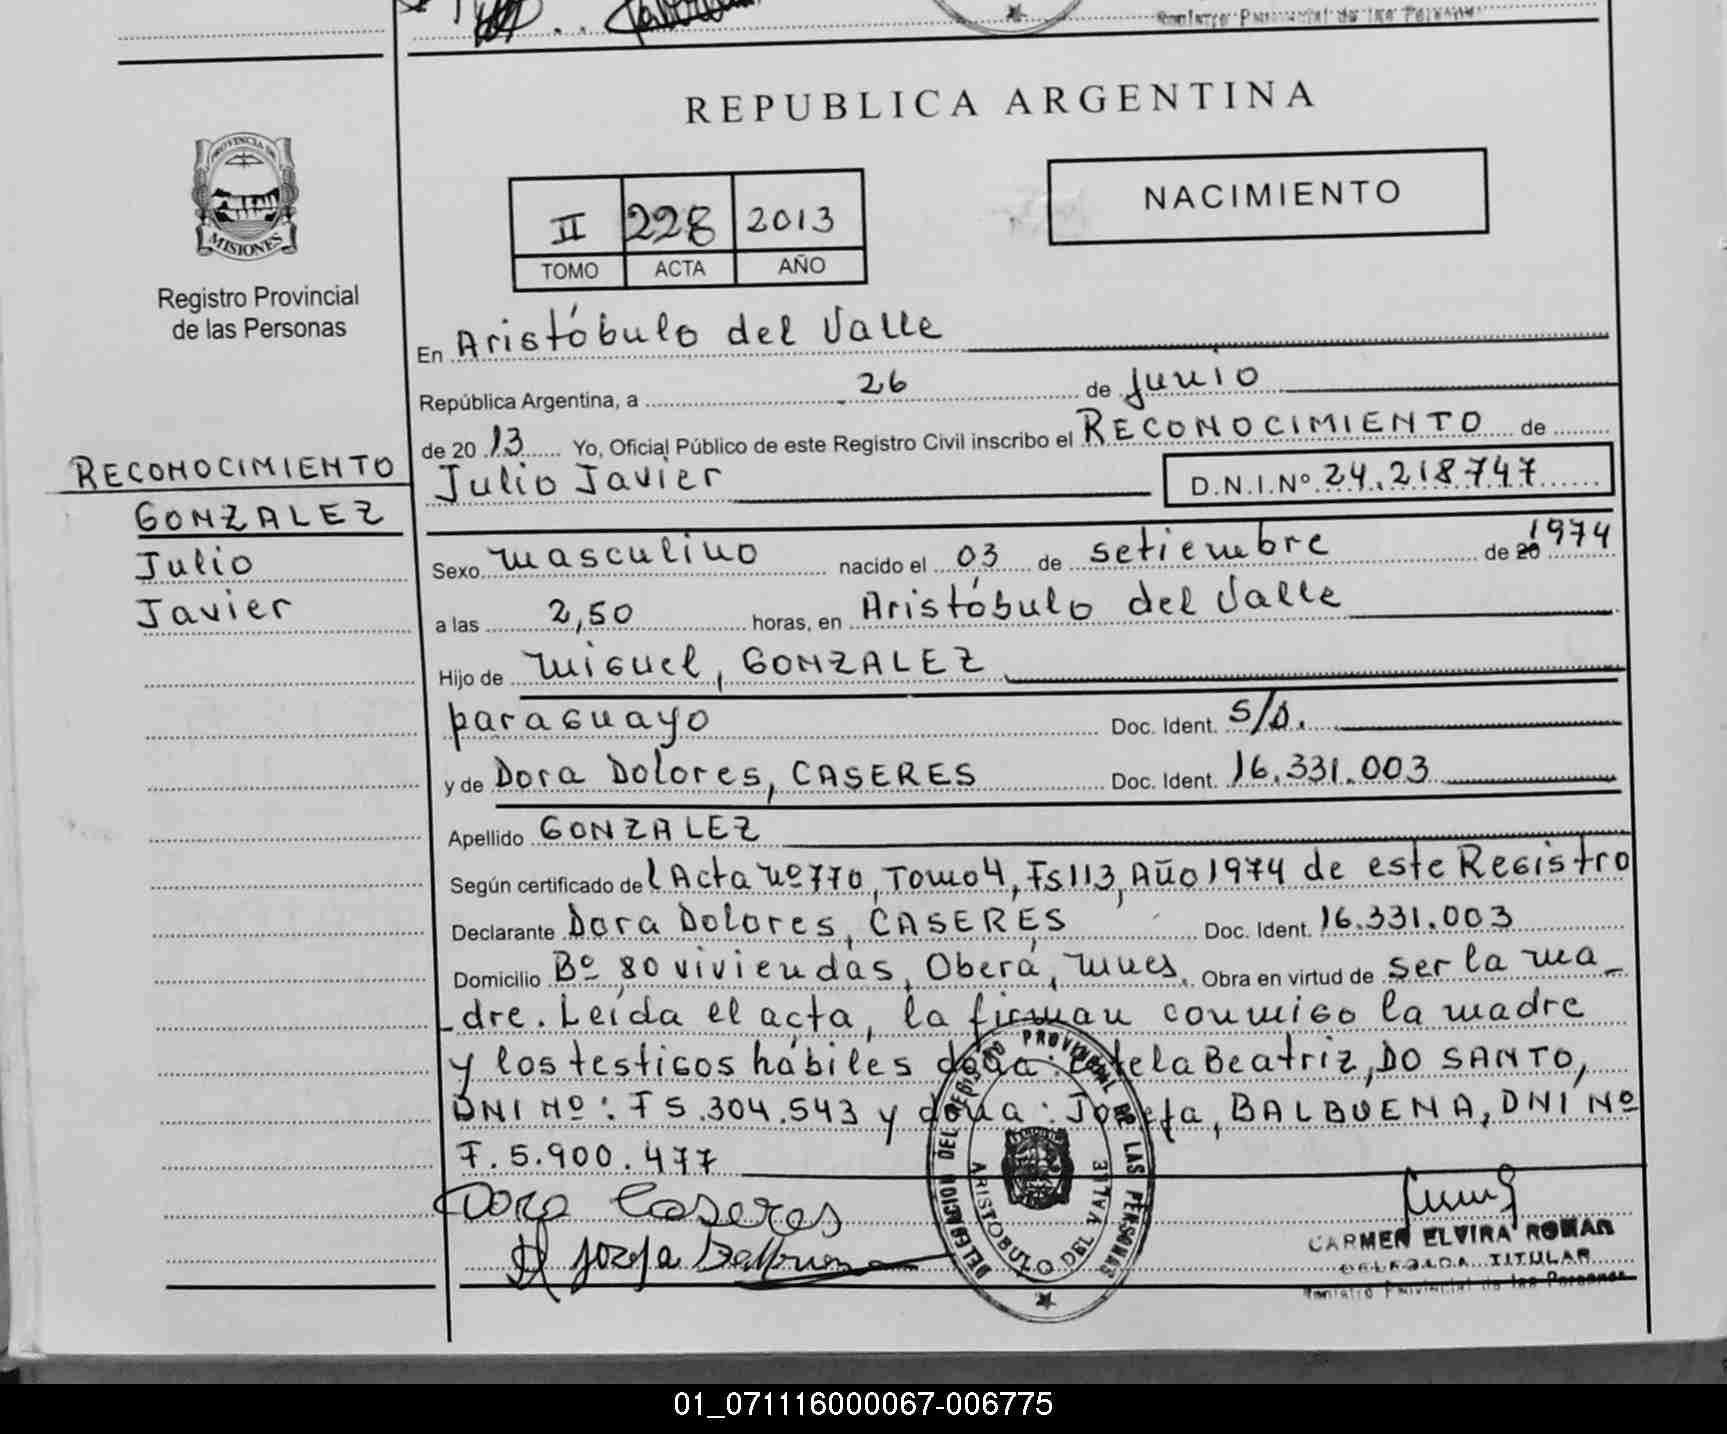 REPUBLICA ARGENTINA
PROVINCIA DE
MISIONES
Registro Provincial
de las Personas
II 228 2013
TOMO ACTA AÑO
NACIMIENTO
En Aristóbulo del Valle
República Argentina, a 26 de junio
de 20 13 Yo, Oficial Público de este Registro Civil inscribo el RECONOCIMIENTO de
Julio Javier D.N.I.Nº 24.218.747
RECONOCIMIENTO
GONZALEZ
Julio
Javier
Sexo masculino nacido el 03 de setiembre de 20 1974
a las 2,50 horas, en Aristóbulo del Valle
Hijo de Miguel, GONZALEZ
paraguayo Doc. Ident. S/D.
y de Dora Dolores, CASERES Doc. Ident. 16.331.003
Apellido GONZALEZ
Según certificado del Acta Nº 770, Tomo 4, Fs 113, Año 1974 de este Registro
Declarante Dora Dolores, CASERES Doc. Ident. 16.331.003
Domicilio Bº 80 viviendas, Oberá, Mnes. Obra en virtud de ser la ma_
_dre. Leída el acta, la firman conmigo la madre
y los testigos hábiles doña: Beatriz, DO SANTO,
DNI Nº: F 5.304.543 y doña: Josefa, BALBUENA, DNI Nº
F. 5.900.477
Dora Caseres
Josefa Balbuena
DELEGACION DEL REGISTRO PROVINCIAL DE LAS PERSONAS
ARISTOBULO DEL VALLE
CARMEN ELVIRA ROMAN
DELEGADA TITULAR
Registro Provincial de las Personas
01_071116000067-006775